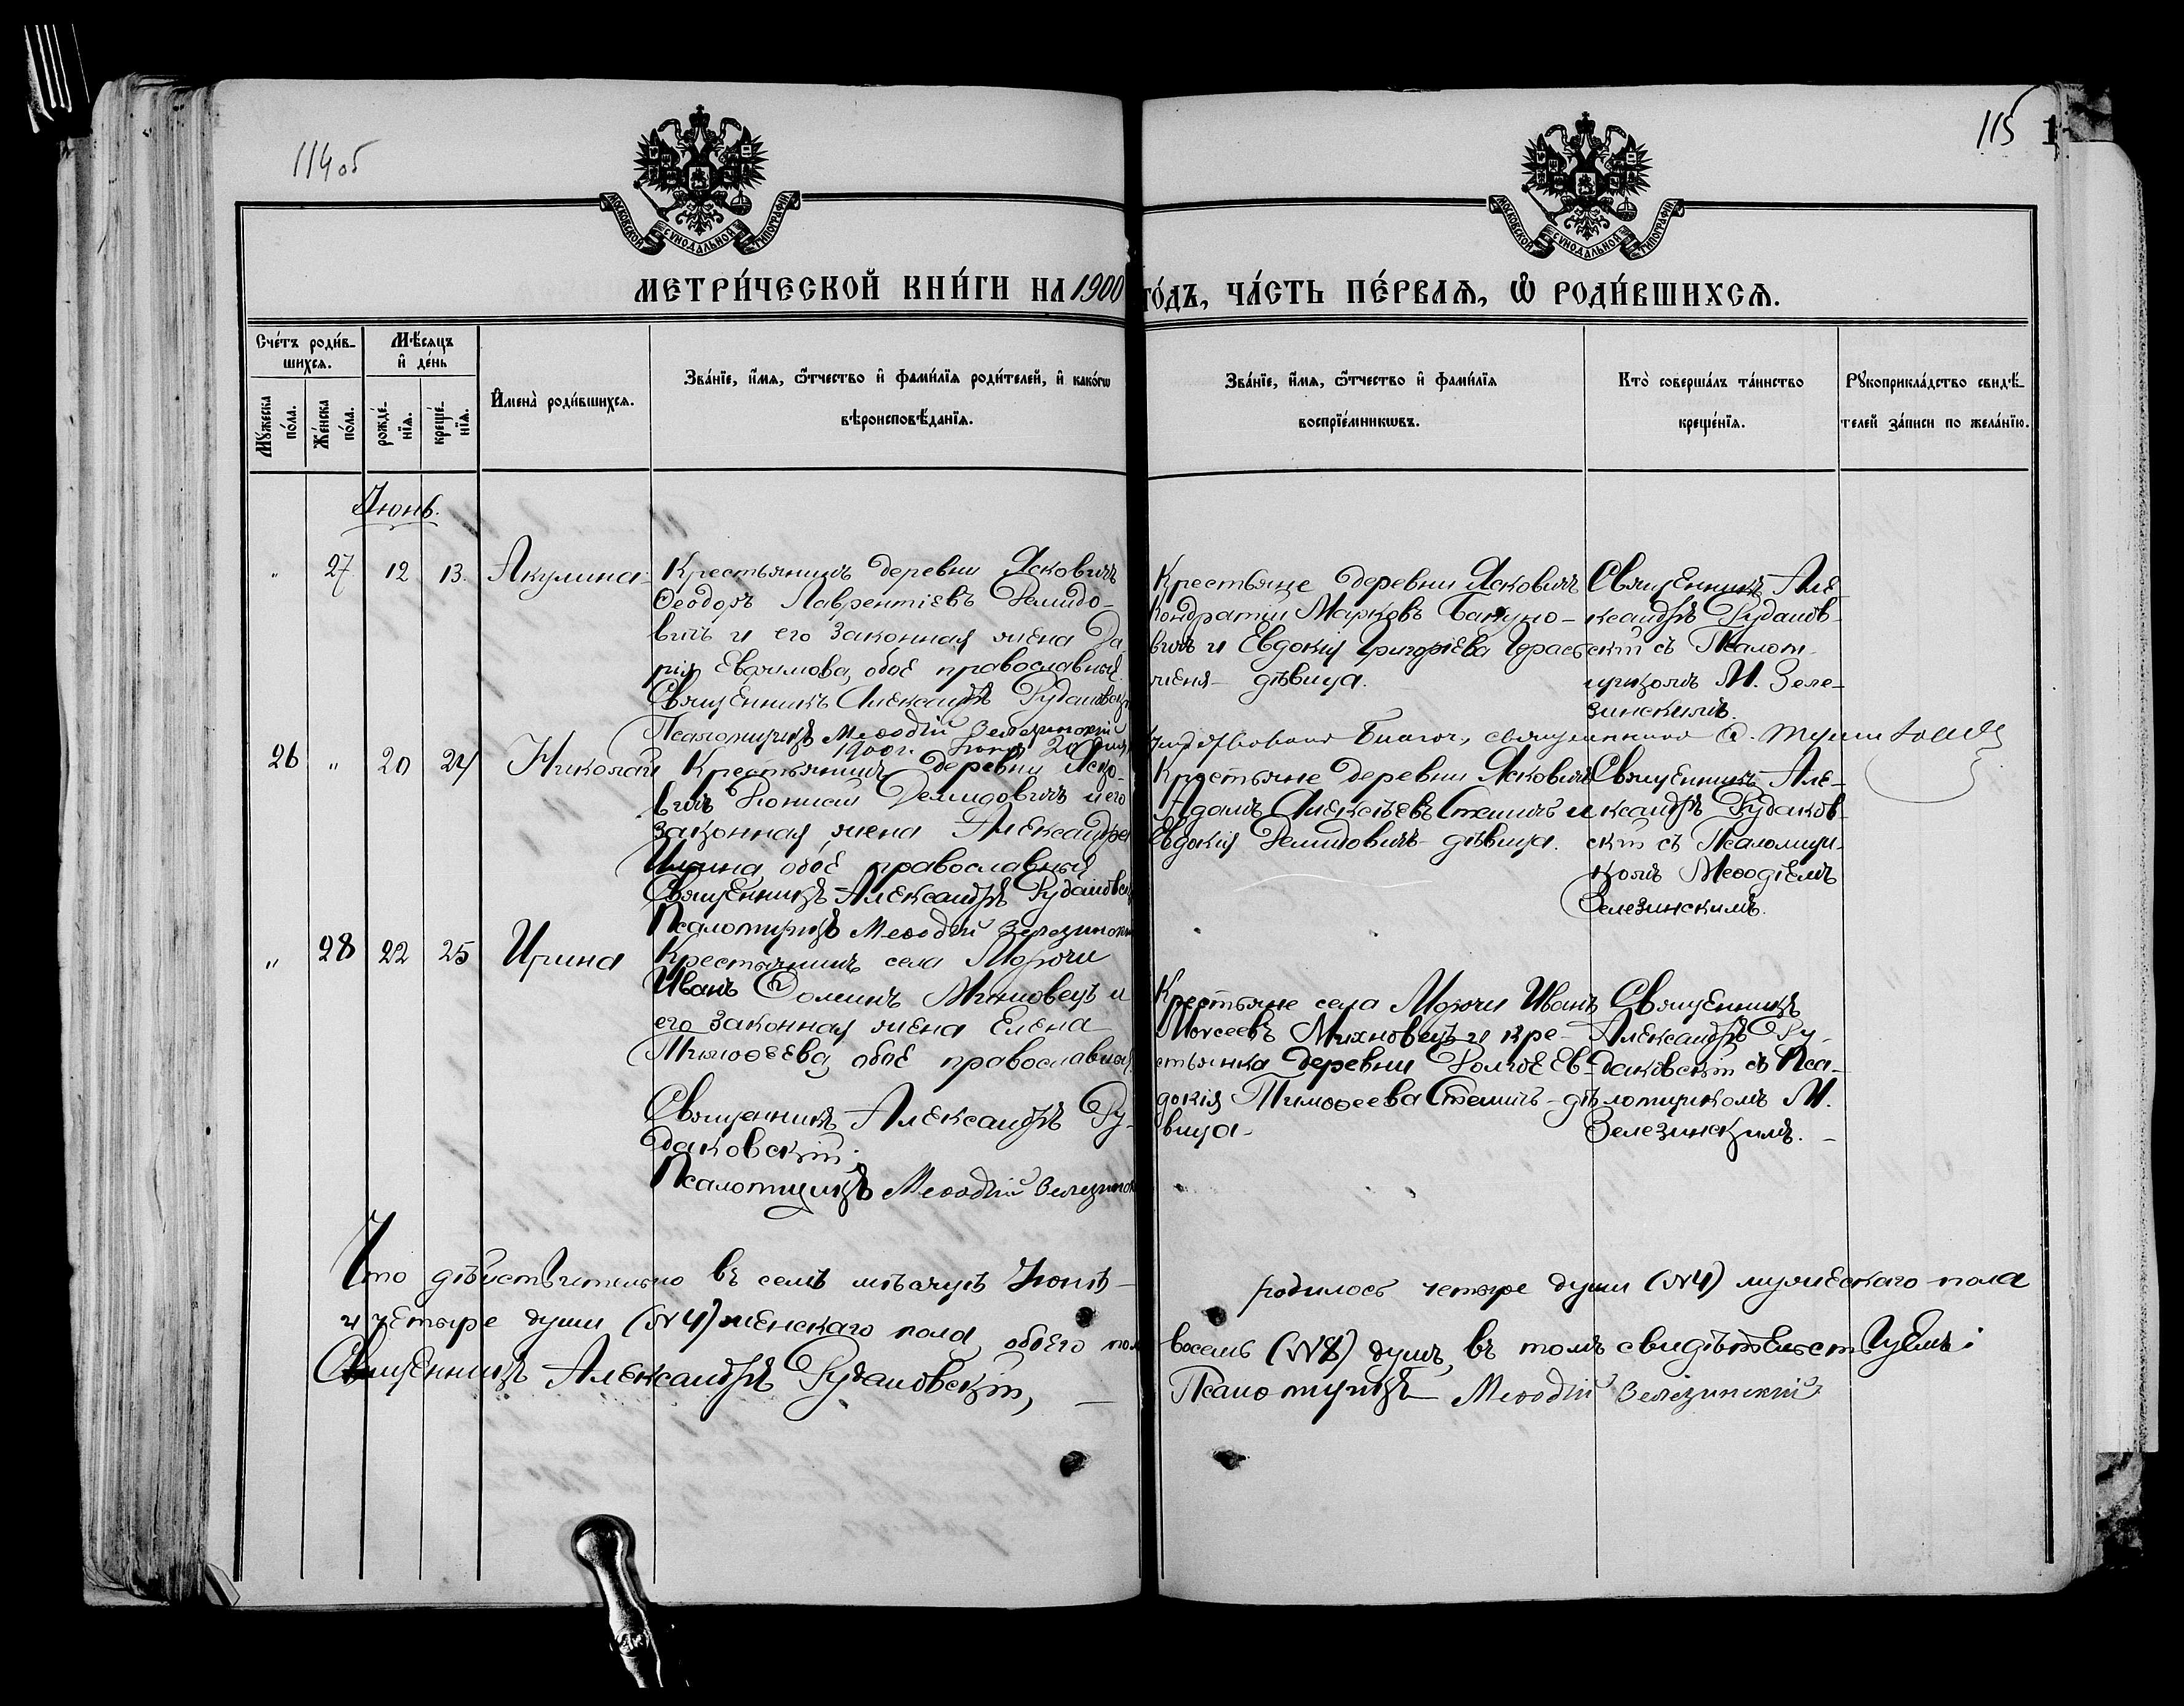 114 об
115
МОСКОВСКОЙ СУНОДАЛЬНОЙ ТИПОГРАФІИ
МОСКОВСКОЙ СУНОДАЛЬНОЙ ТИПОГРАФІИ
МЕТРИ́ЧЕСКОЙ КНИ́ГИ НА 1900 ГО́ДЪ, ЧА́СТЬ ПЕ́РВАѦ, Ѡ РОДИ́ВШИХСѦ.
Сче́тъ роди́в-
шихсѧ.
Мꙋ́жеска по́ла.
Же́нска по́ла.
Мѣ́сѧцъ
и҆ де́нь
рожде́-
нїѧ.
креще́-
нїѧ.
И҆мена̀ роди́вшихсѧ.
Зва́нїе, и҆́мѧ, ѻ҆́тчество и҆ фами́лїѧ роди́телей, и҆ како́гѡ
вѣроисповѣ́данїѧ.
Зва́нїе, и҆́мѧ, ѻ҆́тчество и҆ фами́лїѧ
воспрїе́мникѡвъ.
Кто̀ соверша́лъ та́инство
креще́нїѧ.
Рꙋкоприкла́дство свидѣ́-
телей за́писи по жела́нїю.
Іюнь.
" 27 12 13. Акулина
Крестьянинъ деревни Ясковичъ
Ѳеодоръ Лаврентіевъ Демидо-
вичъ и его законная жена Да-
рія Евфимова, обое православные.
Священникъ Александръ Рудаковскій
Псаломщикъ Меѳодій Зелезинскій
Крестьяне деревни Ясковичъ
Кондратій Марковъ
вичъ и Евдокія Григоріева
дѣвица.
Священникъ Але-
ксандръ Рудаков-
скій съ Псалом-
щикомъ М. Зеле-
зинскимъ.
1900 г. Іюня 20 дня
Благоч., священникъ
26 " 20 24 Николай
Крестьянинъ деревни Яско-
вичъ Діонисій Демидовичъ и его
законная жена Александра
Ильина, обое православные
Священникъ Александръ Рудаковскій
Псаломщикъ Меѳодій Зелезинскій
Крестьяне деревни Ясковичъ
Адамъ Алексѣевъ Стешицъ и
Евдокія Демидовичъ - дѣвица.
Священникъ Але-
ксандръ Рудаков-
скій съ Псаломщи-
комъ Меѳодіемъ
Зелезинскимъ.
" 28 22 25 Ирина
Крестьянинъ села Морочи
Иванъ Ѳоминъ Михновецъ и
его законная жена Елена
Тимоѳеева, обое православные
Священникъ Александръ Ру-
даковскій.
Псаломщикъ Меѳодій Зелезинскій
Крестьяне села Морочи Иванъ
Моисеевъ Михновецъ и кре-
стьянка деревни Долгое Ев-
докія Тимоѳеева Стешицъ - дѣ-
вица -
Священникъ
Александръ Ру-
даковскій съ Пса-
ломщикомъ М.
Зелезинскимъ. -
Что дѣйствительно въ семъ мѣсяцѣ Іюнѣ - родилось четыре души (№4) мужескаго пола
и четыре души (№4) женскаго пола, обоего пола восемь (№8) душъ, въ томъ свидѣтельствуемъ:
Священникъ Александръ Рудаковскій, - Псаломщикъ Меѳодій Зелезинскій